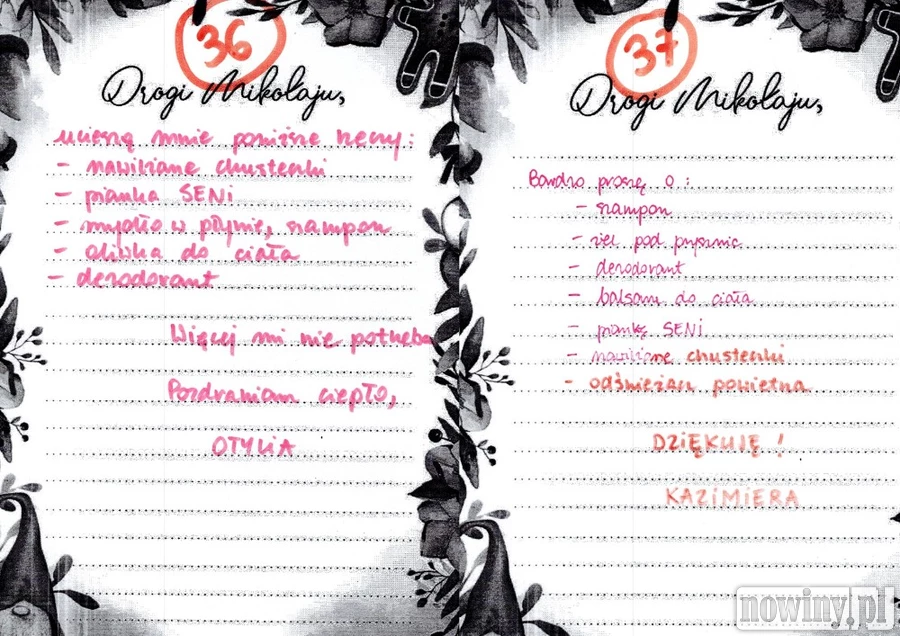 36
Drogi Mikołaju,
ucieszą mnie poniższe rzeczy:
- nawilżane chusteczki
- pianka SENI
- mydło w płynie, szampon
- oliwka do ciała
- dezodorant
Więcej mi nie potrzeba
Pozdrawiam ciepło,
OTYLIA
37
Drogi Mikołaju,
Bardzo proszę o:
- szampon
- żel pod prysznic
- dezodorant
- balsam do ciała
- piankę SENI
- nawilżane chusteczki
- odświeżacz powietrza
DZIĘKUJĘ!
KAZIMIERA
nowiny.pl